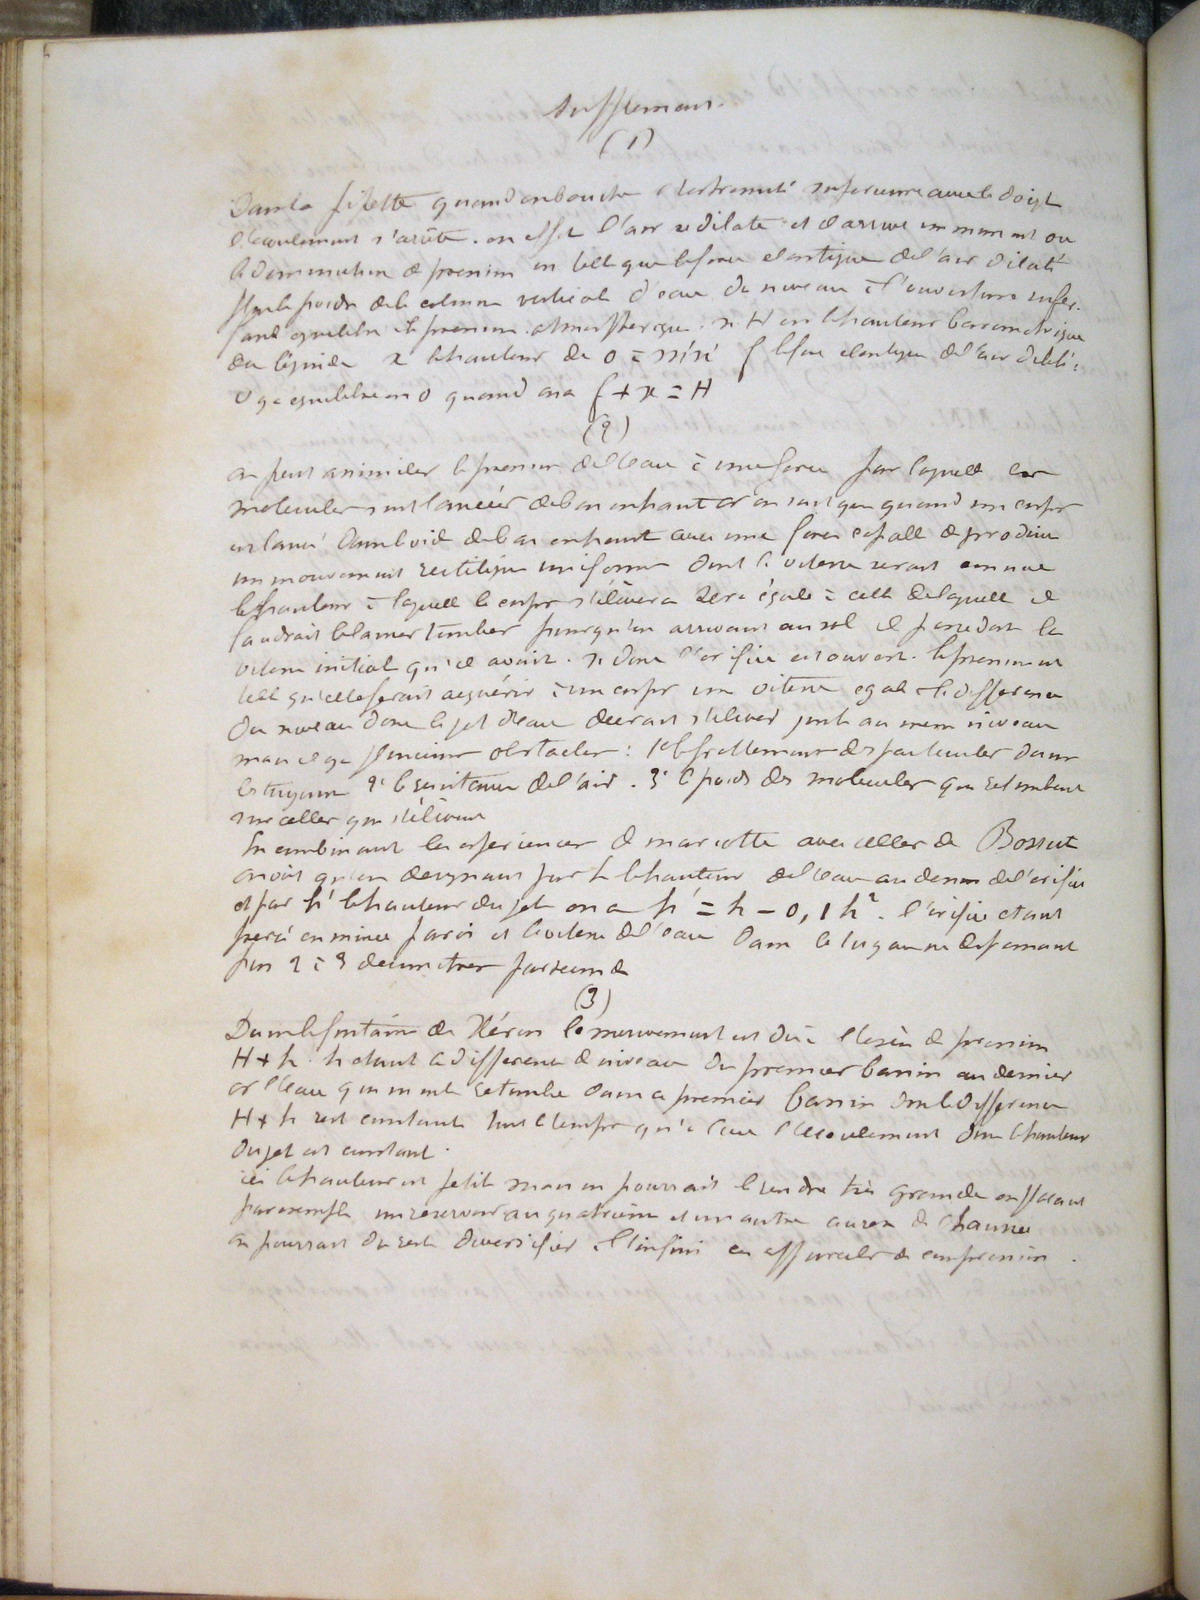 Supplement.
(1)
Dans la pipette quand on bouche l'extremité inferieure avec le doigt
l'écoulement s'arrête. en effet l'air se dilate et il arrive un moment où
la diminution de pression est telle que la force elastique de l'air dilaté
plus le poids de la colonne verticale d'eau du niveau à l'ouverture infer.
fait equilibre à la pression atmospherique. si H est la hauteur barometrique
du liquide x la hauteur de o à f la force elastique de l'air dilaté,
il y a equilibre en o quand on a f + x = H
(2)
on peut assimiler la pression de l'eau à une force par laquelle les
molecules sont lancées de bas en haut or on sait que quand un corps
est lancé dans le vide de bas en haut avec une force capable de produire
un mouvement rectiligne uniforme dont la vitesse serait connue
la hauteur à laquelle le corps s'élèvera sera égale à celle de laquelle il
faudrait le laisser tomber pour qu'en arrivant au sol il possedat la
vitesse initiale qu'il avait. si donc l'orifice est ouvert. la pression est
telle qu'elle ferait acquérir à un corps une vitesse egale à la difference
du niveau donc le jet d'eau devrait s'élever jusqu'au meme niveau
mais il y a plusieurs obstacles : 1° le frottement des particules dans
les tuyaux 2° la resistance de l'air. 3° le poids des molecules qui retombent
sur celles qui s'élèvent
En combinant les experiences de mariotte avec celles de Bossut
on voit qu'en designant par h la hauteur de l'eau au dessus de l'orifice
et par h' la hauteur du jet on a h' = h - 0,1 h². l'orifice etant
percé en mince paroi et la vitesse de l'eau dans le tuyau ne depassant
pas 2 à 3 decimetres par seconde
(3)
Dans la fontaine de Héron le mouvement est dû à l'excès de pression
H + h. h etant la difference de niveau du premier bassin au dernier
or l'eau qui monte retombe dans ce premier bassin donc la difference
H + h est constante tout le temps qu'a lieu l'écoulement donc la hauteur
du jet est constant.
ici la hauteur est petite mais on pourrait la rendre très grande en plaçant
par exemple un reservoir au quatrième et un autre au rez de chaussée
on pourrait du reste diversifier à l'infini ces appareils de compression.